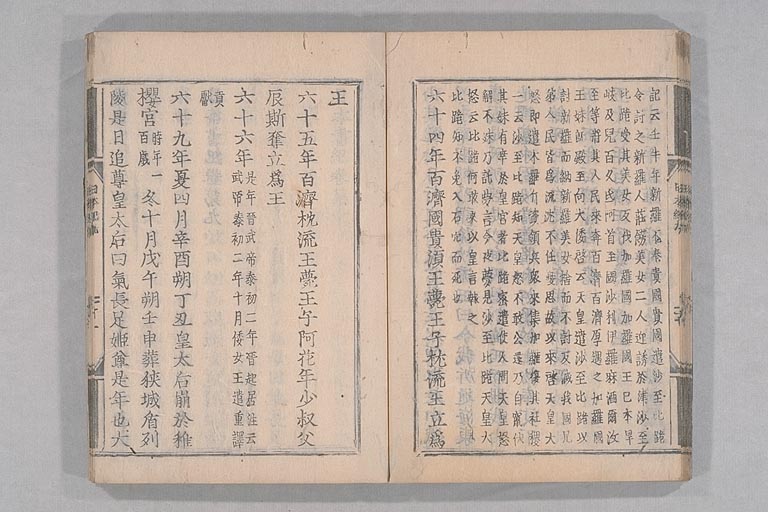 記云壬午年新羅不奉貴國貴國遣沙至比跪
令討之新羅人莊飾美女二人迎誘於津沙至
比跪受其美女反伐加羅國加羅國王己本旱
岐及兒百久至阿首至國沙利伊羅麻酒爾汶
至等將其人民來奔百濟百濟厚遇之加羅國
王妹既殿至向大倭啓云天皇遣沙至比跪以
討新羅而納新羅美女捨而不討反滅我國兄
弟人民皆爲流沈不任憂思故以來啓天皇大
怒即遣木羅斤資領兵衆來集加羅復其社稷
一云沙至比跪知天皇怒不敢公還乃自竄伏
其妹有幸於皇宮者比跪密遣使人問天皇怒
解不妹乃託夢言今夜夢見沙至比跪天皇大
怒云比跪何敢來以皇言報之
比跪知不免入石穴而死也
六十四年百濟國貴須王薨王子枕流王立爲
王
六十五年百濟枕流王薨王子阿花年少叔父
辰斯奪立爲王
六十六年是年晉武帝泰初二年晉起居注云
武帝泰初二年十月倭女王遣重譯
貢獻
六十九年夏四月辛酉朔丁丑皇太后崩於稚
櫻宮時年一
百歲冬十月戊午朔壬申葬狹城盾列
陵是日追尊皇太后曰氣長足姬尊是年也大